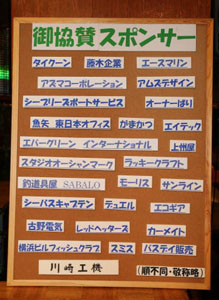 御協賛スポンサー
タイクーン 藤木企業 エースマリン
アズマコーポレーション アムズデザイン
シーブリーズボートサービス オーナーばり
魚矢 東日本オフィス がまかつ エイテック
エバーグリーン インターナショナル 上州屋
スタジオオーシャンマーク ラッキークラフト
釣道具屋 SABALO モーリス サンライン
シーバスキャプテン デュエル エコギア
古野電気 レッドヘッターズ カーメイト
横浜ビルフィッシュクラブ スミス バスデイ販売
川崎工機 (順不同・敬称略)